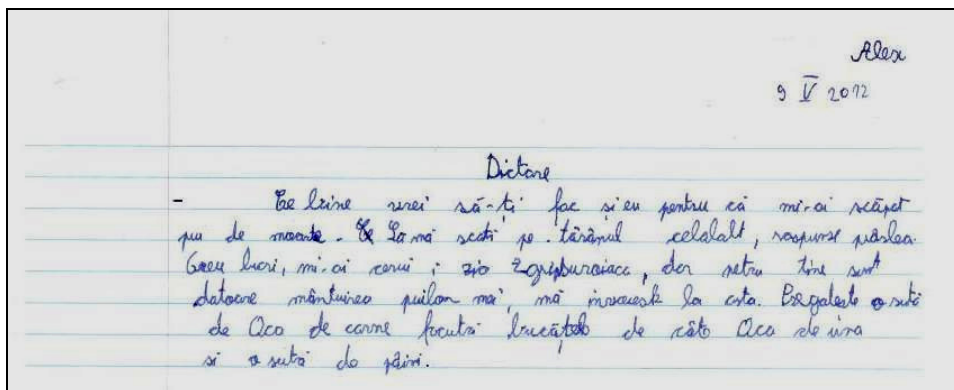 Alex
9 V 2012
Dictare
- Ce bine vrei să-ți fac și eu pentru că mi-ai scăpat
pui de moarte. Să mă scoți pe tărâmul celalalt, raspunse prâslea.
Greu lucru, mi-ai cerut; zio Zgripsuroiaca, dar petru tine sunt
datoare mântuirea puilor mai, mă învoiesk la asta. Pregateste o sută
de Oca de carne facută bucățele de câto Oca de una
si o sută de pâini.